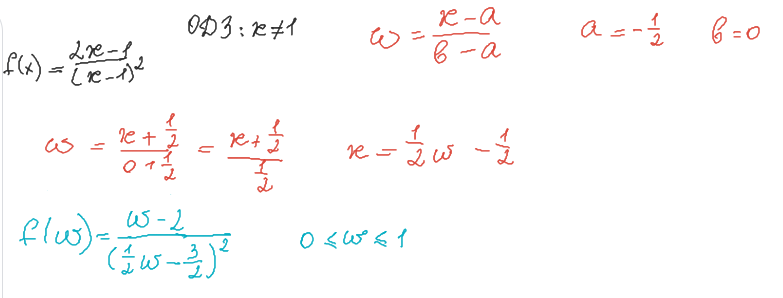 f(x) = (2x-1)/(x-1)² ОДЗ: x≠1 ω = (x-a)/(b-a) a = -1/2 b = 0
ω = (x+1/2)/(0+1/2) = (x+1/2)/(1/2) x = 1/2 ω - 1/2
f(ω) = (ω-2)/(1/2 ω - 3/2)² 0 ≤ ω ≤ 1